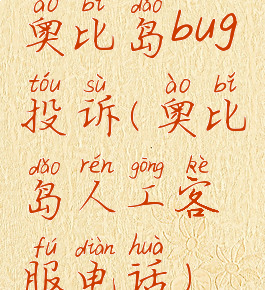 ào bǐ dǎo
奥比岛bug
tóu sù ào bǐ
投诉(奥比
dǎo rén gōng kè
岛人工客
fú diàn huà
服电话)